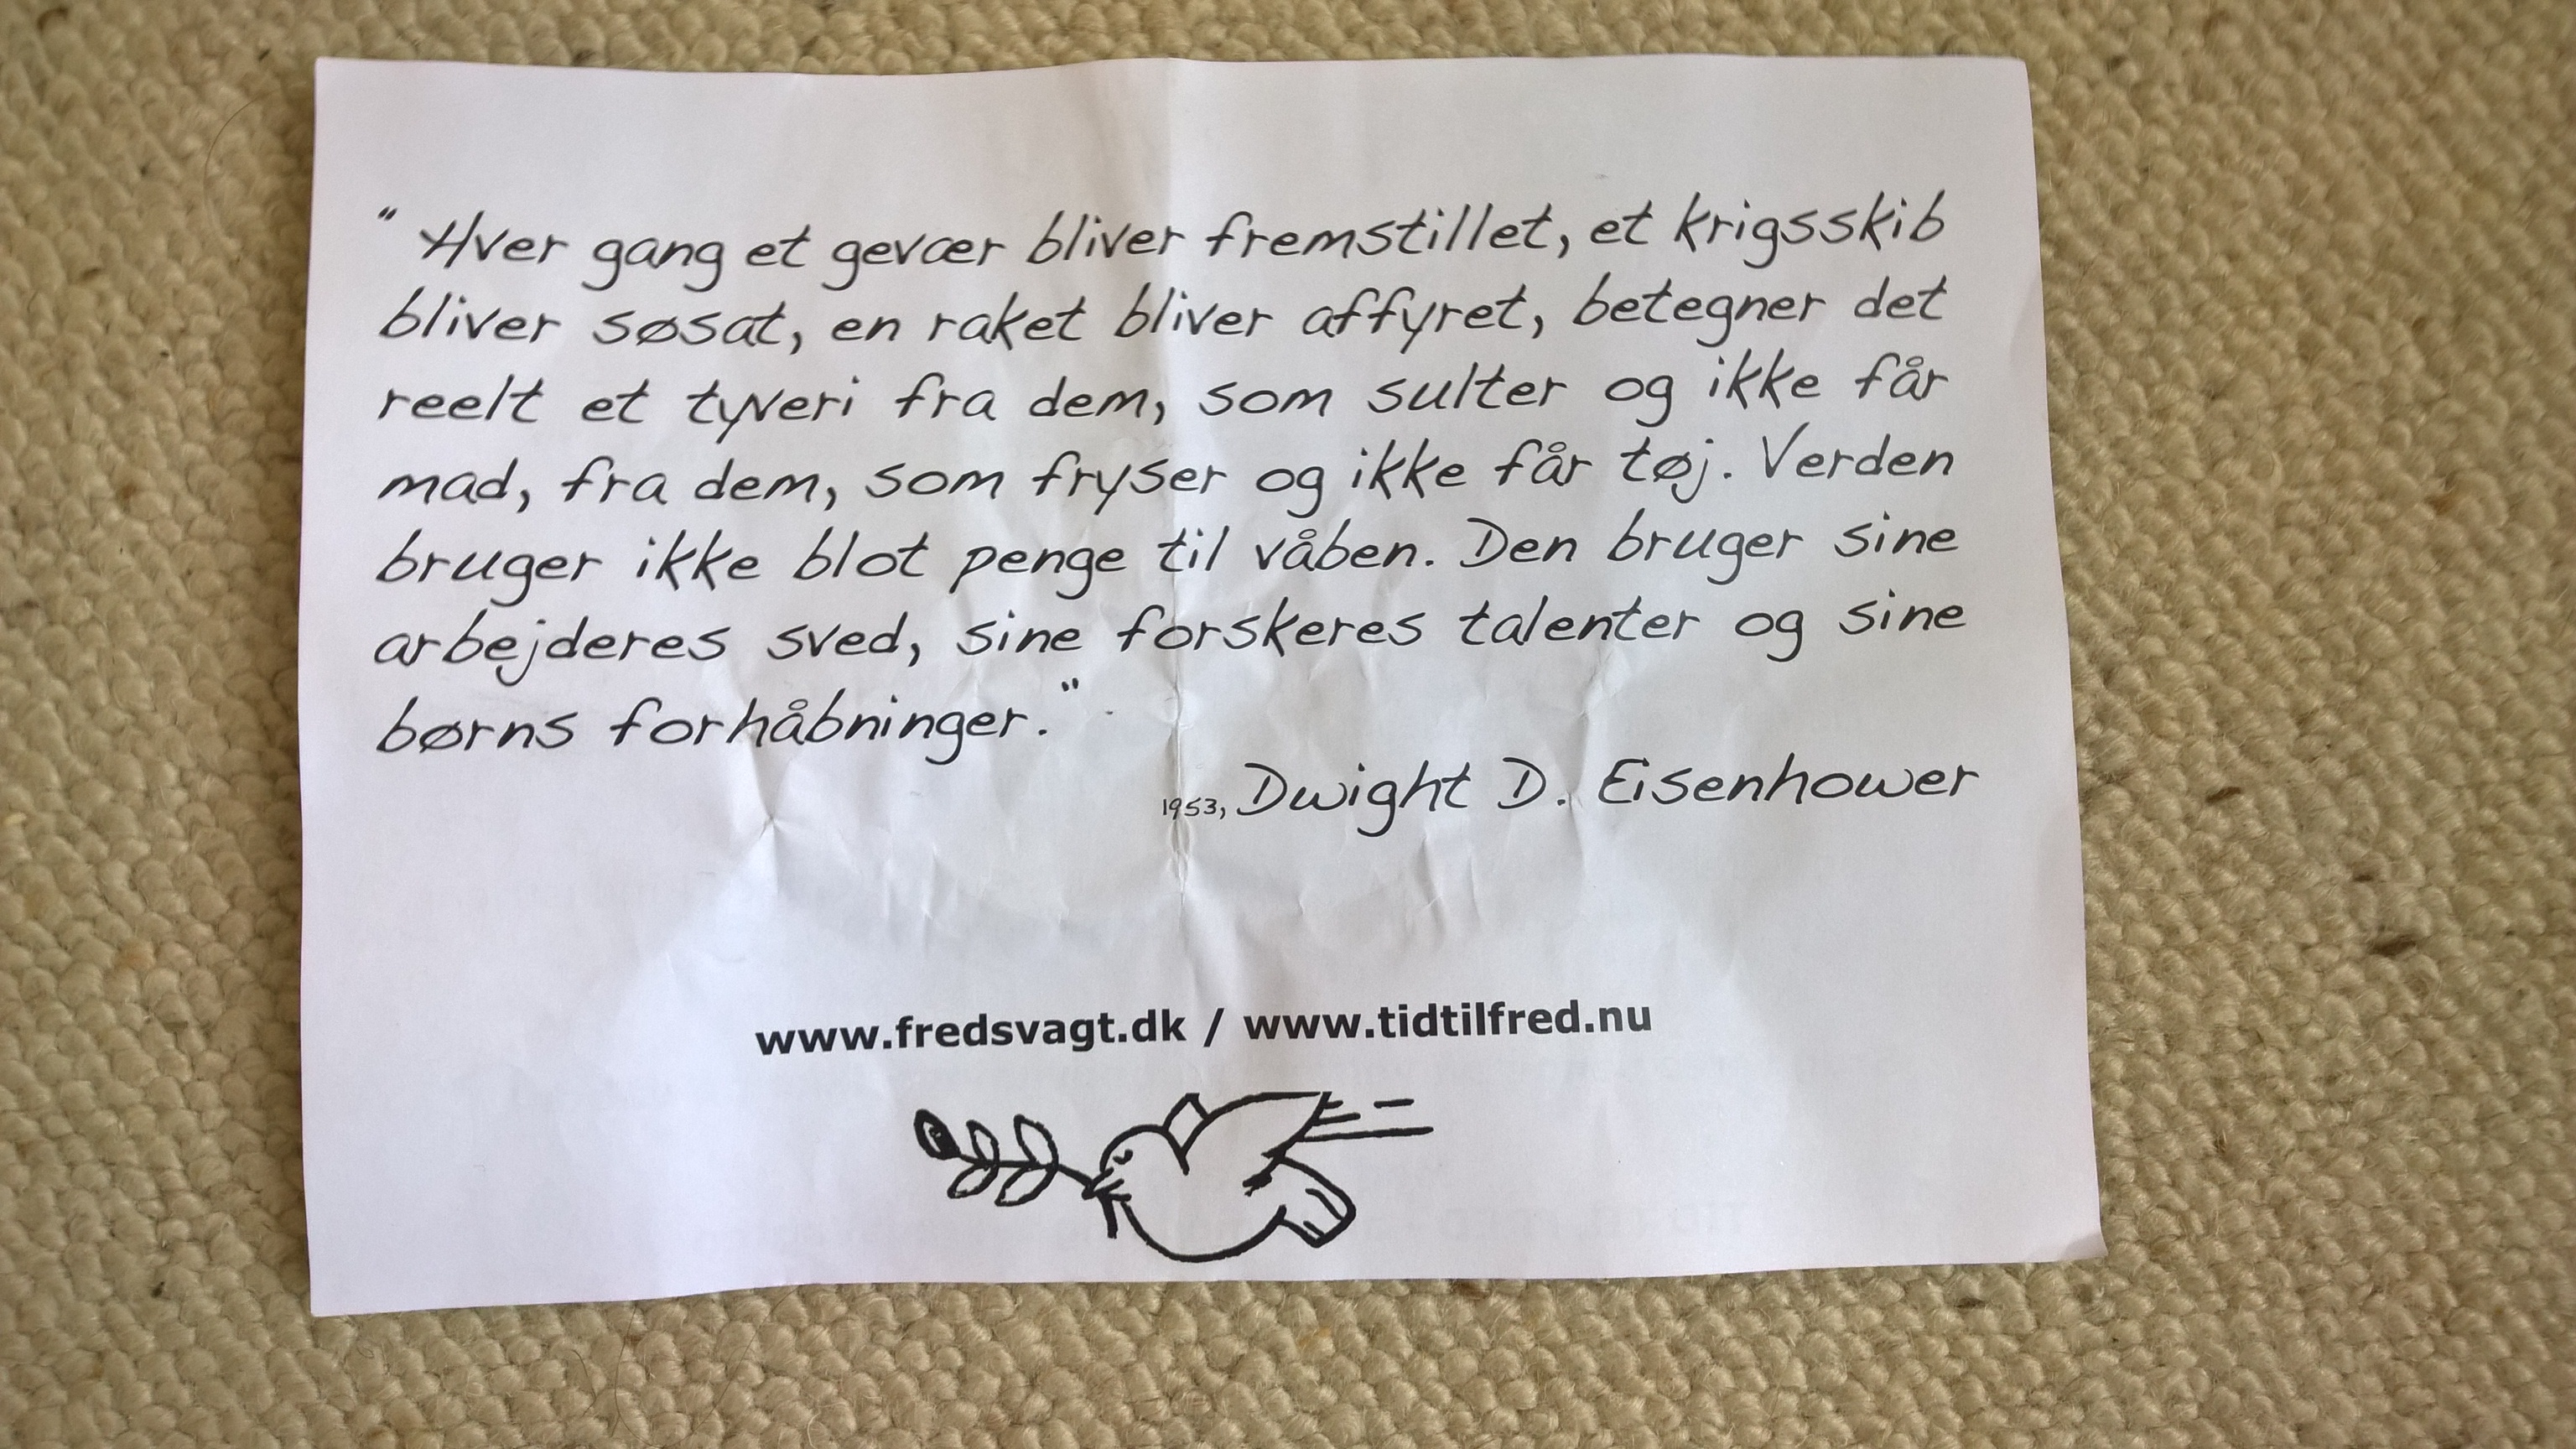 "Hver gang et gevær bliver fremstillet, et krigsskib
bliver søsat, en raket bliver affyret, betegner det
reelt et tyveri fra dem, som sulter og ikke får
mad, fra dem, som fryser og ikke får tøj. Verden
bruger ikke blot penge til våben. Den bruger sine
arbejderes sved, sine forskeres talenter og sine
børns forhåbninger."
1953, Dwight D. Eisenhower
www.fredsvagt.dk / www.tidtilfred.nu